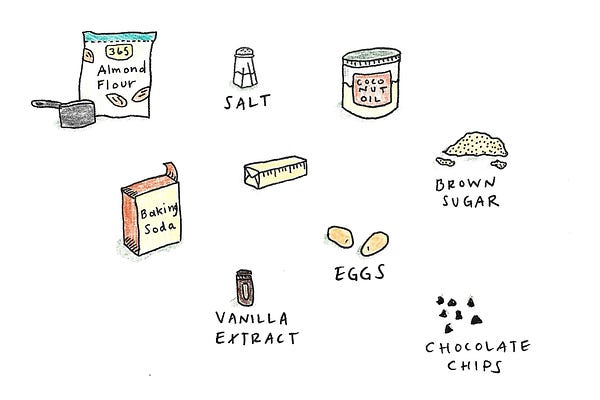 365
Almond
Flour
SALT
COCO
NUT
OIL
BROWN
SUGAR
Baking
Soda
EGGS
VANILLA
EXTRACT
CHOCOLATE
CHIPS